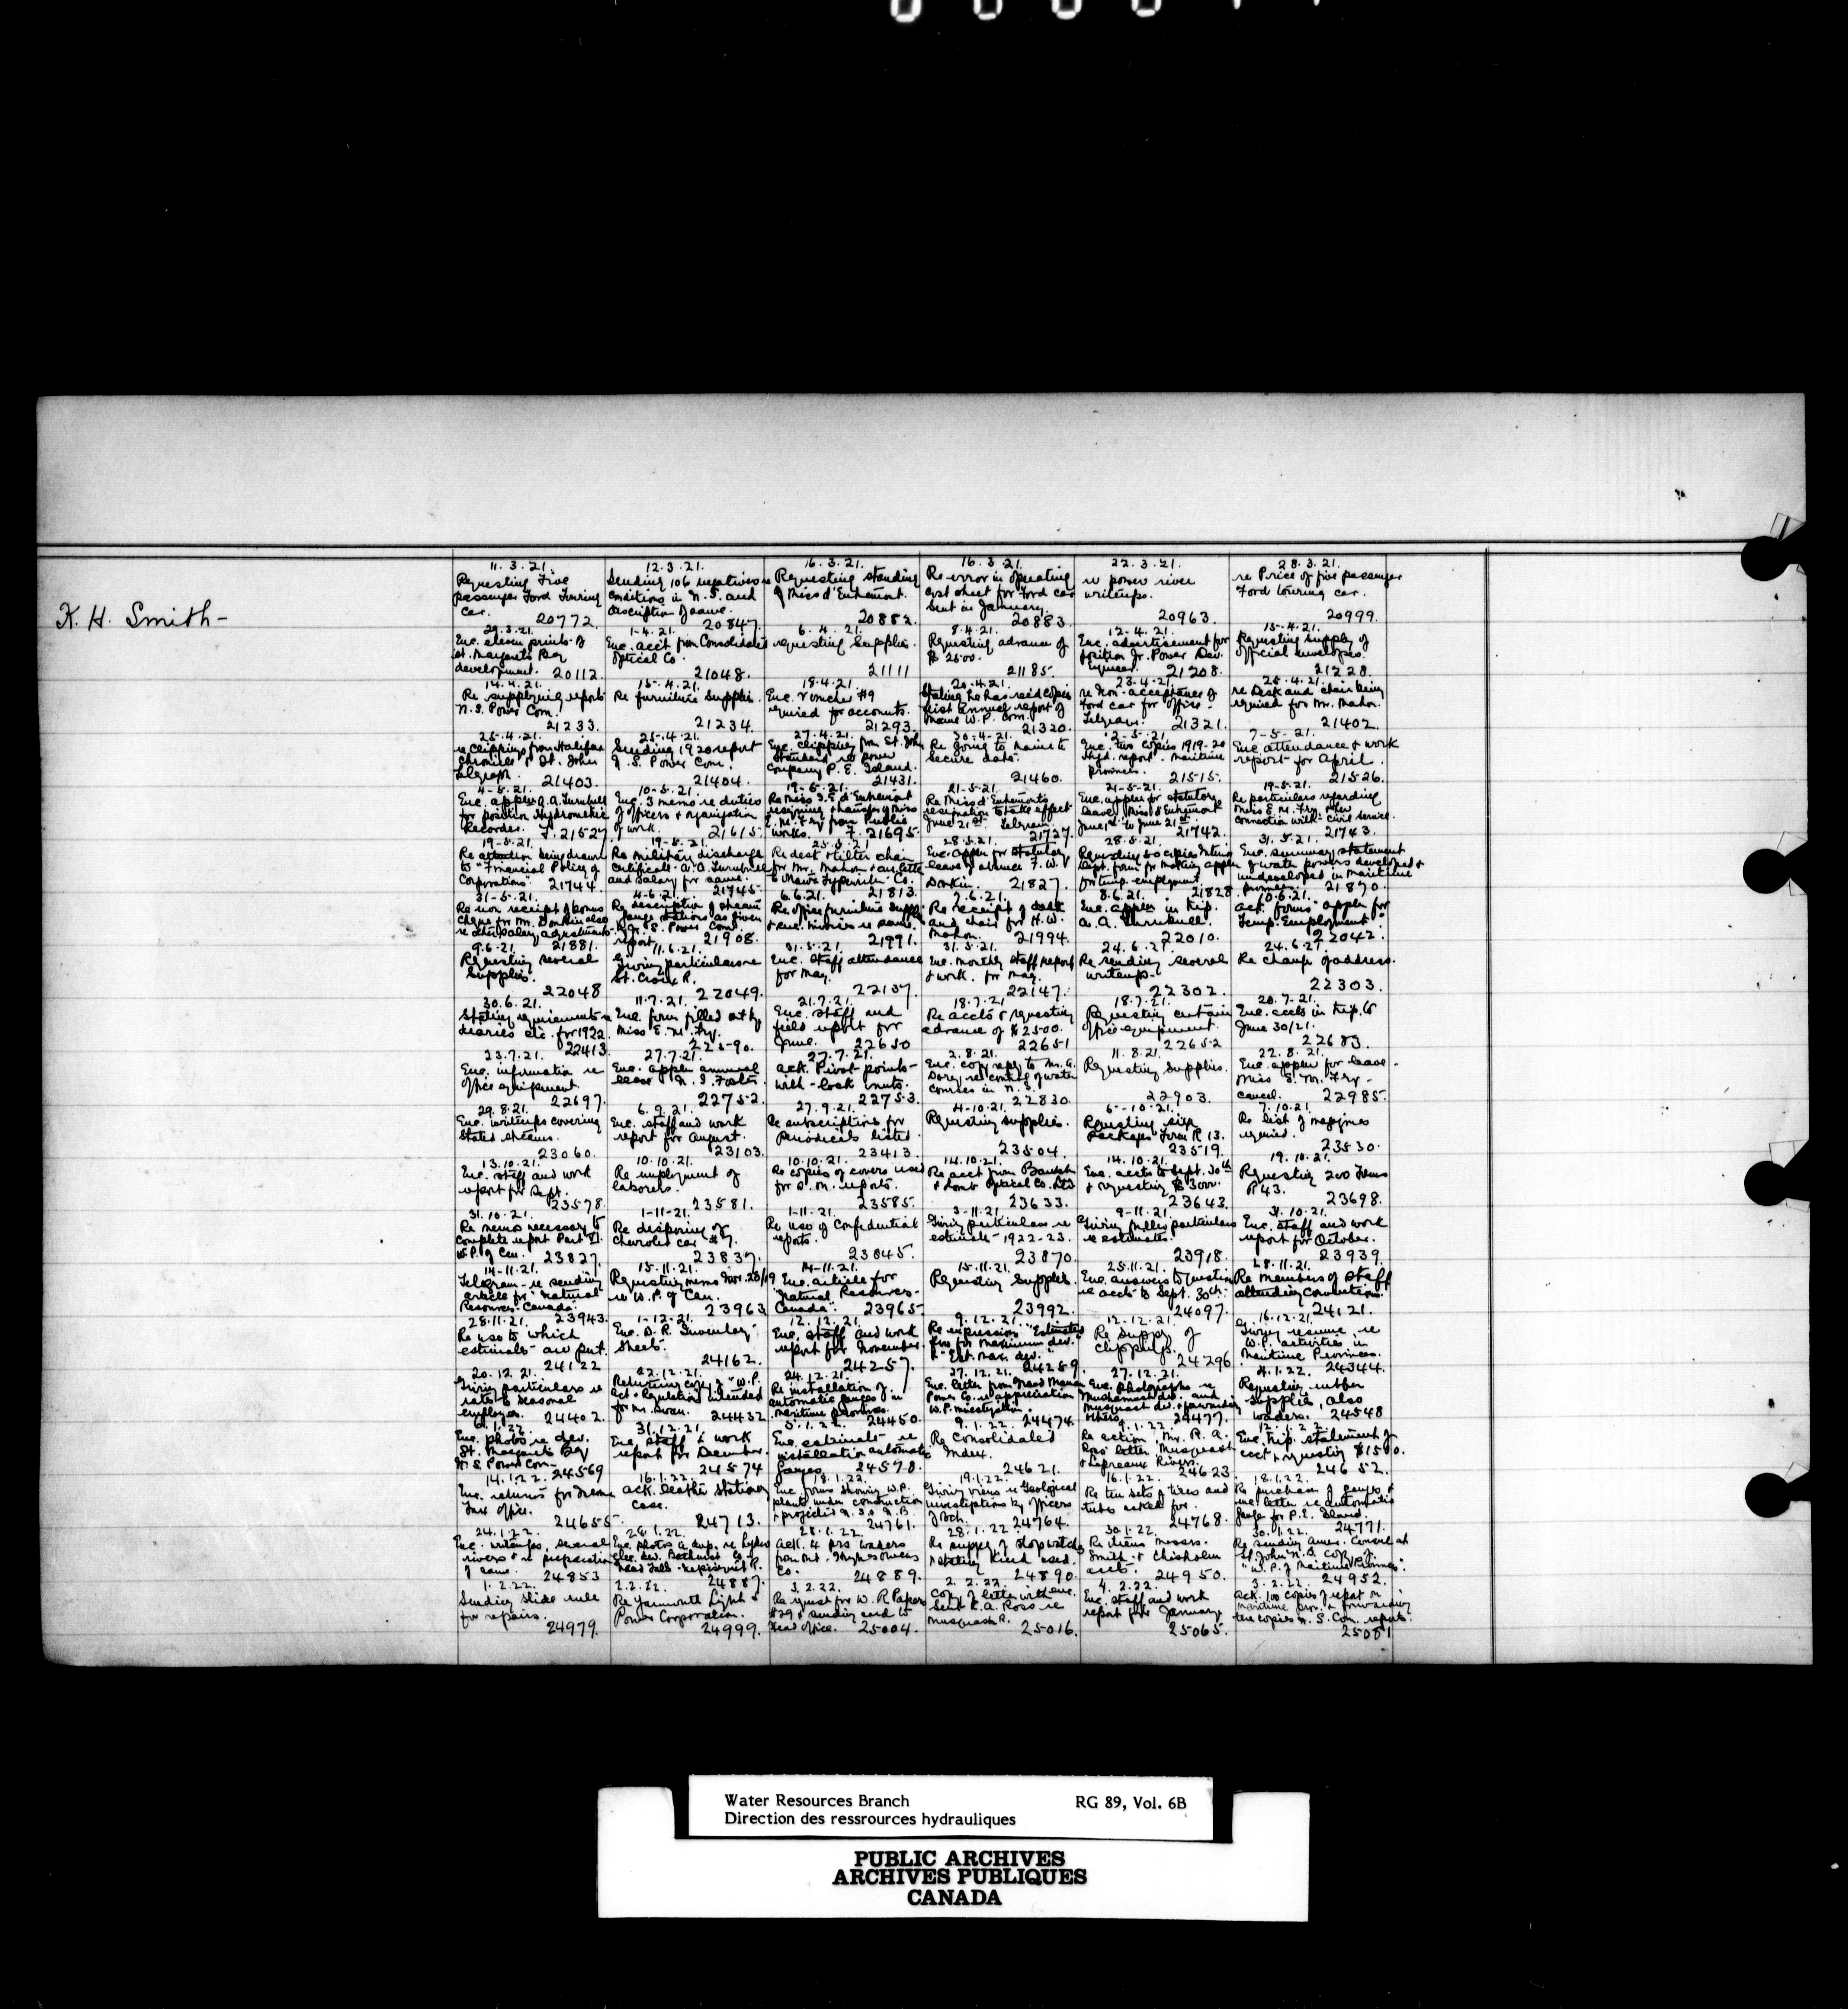 K. H. Smith -
11.3.21.
Requesting Five
passenger Ford Touring
car.
20772.
12.3.21.
Sending 106 negatives re
conditions in N.S. and
description of same.
20847.
16.3.21.
Requesting standing
of Miss d'Entremont.
20882.
16.3.21.
Re error in operating
cost sheet for Ford car
sent in January.
20883.
22.3.21.
re power river
writeups.
20963.
28.3.21.
re Price of five passenger
Ford touring car.
20999.
29.3.21.
Enc. eleven prints of
St. Margarets Bay
development. 20112.
1-4.21.
Enc. acct from Consolidated
Optical Co.
21048.
6.4.21.
requesting supplies.
21111
8.4.21.
Requesting advance of
$2500.
21185.
12-4.21.
Enc. advertisement for
position Jr. Power Dev.
Engineer. 21208.
15-4.21.
Requesting supply of
official envelopes.
21228.
14.4.21.
Re supplying reports
N.S. Power Com.
21233.
15-.4.21.
Re furniture supplies.
21234.
18.4.21.
Enc. Voucher #9
required for accounts.
21293.
20.4.21.
Stating he has recd copies
first annual report of
Maine W.P. Com.
21320.
23-4.21.
re Non-acceptance of
Ford car for office -
Telegram. 21321.
25.4.21.
re Desk and chair being
required for Mr. Mahon.
21402.
25.4.21.
re clippings from Halifax
Chronicle & St. John
Telegraph. 21403.
25-.4.21.
Sending 1920 report
N.S. Power Com.
21404.
27.4.21.
Enc. clipping from St. John
Standard re power
Company P.E. Island.
21431.
30-4-21.
Re going to Maine to
secure data.
21460.
2-5-21.
Enc. two copies 1919-20
Hyd. report - Maritime
provinces. 21515.
7-5-21.
Enc. attendance & work
report for April.
21526.
4-5.21.
Enc. appln A.A. Turnbull
for position Hydrometric
Recorder. F. 21527
10-5.21.
Enc. 3 memo re duties
of officers & organization
of work. 21615.
19-5.21.
Re Miss d'Entremont
resigning & transfer of Miss
E.M. Fry from Public
works. F. 21695
21-5-21.
Re Miss d'Entremont's
resignation to take effect
June 21st. Telegram.
21727.
21-5-21.
Enc. appln for statutory
leave Miss d'Entremont
June 1st to June 21st.
21742.
19-5.21.
Re particulars regarding
Miss E.M. Fry & her
connection with civil service.
21743.
19-5-21.
Re attention being drawn
to "Financial Policy of
Corporations" 21744.
19-5.21.
Re military discharge
certificate - A.A. Turnbull
and salary for same.
21745.
25.5.21
Re desk & tilter chair
for Mr. Mahon
21813.
28.5.21.
Enc. appln for statutory
leave of absence F.W.
Donkin. 21827.
28.5.21.
Requesting 50 copies Interior
Dept. form for making appln
for temp. employment.
21828
31.5.21.
Enc. summary statement
of water powers developed &
undeveloped in Maritime
provinces. 21870.
31-5-21.
Re non receipt of bonus
cheque for Mr. Donkin also
re other salary adjustments
21881.
4-6.21.
Re description of stream
gauge stations as given
by N.S. Power Com.
report. 21908.
6.6.21.
Re office furniture supply
& enc. invoices re same.
21991.
7.6.21.
Re receipt of desk
and chair for H.W.
Mahon. 21994.
8.6.21.
Enc. appln in trip.
A.A. Turnbull.
22010.
10.6.21.
Ack. forms "appln for
Temp. Employment."
22042.
9.6.21.
Requesting several
supplies.
22048
11.6.21.
Giving particulars re
St. Croix R.
22049.
31.5.21.
Enc. Staff attendance
for May.
22137.
31.5.21.
Enc. monthly staff report
& work for May.
22147.
24.6.21.
Re sending several
writeups -
22302.
24.6.21.
Re change of address.
22303.
30.6.21.
Stating requirements re
diaries etc. for 1922.
22413.
11.7.21.
Enc. form filled out by
Miss E.M. Fry.
22590.
21.7.21.
Enc. staff and
field report for
June. 22650
18.7.21.
Re accts & requesting
advance of $2500.
22651
18.7.21.
Requesting certain
office equipment.
22652
20.7.21.
Enc. accts in trip. to
June 30/21.
22683.
23.7.21.
Enc. information re
office equipment.
22697.
27.7.21.
Enc. appln annual
leave
22752.
27.7.21.
Ack. Pivot-points -
with-lock nuts.
22753.
2.8.21.
Enc. copy reply to Mr. A.
Dorey re control of water
courses in N.S.
22830.
11.8.21.
Requesting supplies.
22903.
22.8.21.
Enc. appln for leave -
Miss E.M. Fry -
cancel. 22985.
29.8.21.
Enc. writeups covering
stated streams.
23060.
6.9.21.
Enc. staff and work
report for August.
23103.
27.9.21.
Re subscriptions for
periodicals listed.
23413.
4-10.21.
Requesting supplies.
23504.
6-10.21.
Requesting six
packages Form R 13.
23519.
7.10.21.
Re list of magazines
required.
23530.
13.10.21.
Enc. staff and work
report for Sept.
23578.
10.10.21.
Re employment of
laborers.
23581.
10.10.21.
Re copies of covers used
for a.m. reports.
23585.
14.10.21.
Re acct from Bausch
& Lomb Optical Co. Ltd
23633.
14.10.21.
Enc. accts to Sept. 30th
& requesting $3000.
23643.
19.10.21.
Requesting 200 Forms
R 43.
23698.
31.10.21.
Re memo necessary to
complete report Part VI.
W.P. of Can. 23827.
1-11-21.
Re disposing of
Chevrolet car #7.
23837.
1-11.21.
Re use of Confidential
reports.
23845.
3-11.21
Giving particulars re
estimates - 1922-23.
23870.
9-11.21.
Giving fuller particulars
re estimates.
23918.
31.10.21.
Enc. staff and work
report for October.
23939.
14-11.21.
Telegram - re sending
article for "Natural
Resources - Canada."
23943.
15.11.21.
Requesting memo Nov. 23/19
re W.P. of Can.
23963
14-11.21.
Enc. article for
"Natural Resources -
Canada". 23965
15.11.21.
Requesting supplies.
23992.
25.11.21.
Enc. answers to questions
re accts to Sept. 30th.
24097.
28.11.21.
Re members of staff
attending convention.
24121.
28.11.21.
Re use to which
estimates are put.
24122
1-12.21.
Enc. D.R. Inventory
sheets.
24162.
12.12.21.
Enc. staff and work
report for November.
24257.
9.12.21.
Re expression "Estimated
flow for Maximum dev."
& "Est. max. dev."
24259.
12-12.21.
Re supply of
clippings.
24296
16.12.21.
Giving resume re
W.P. activities in
Maritime Provinces.
24344.
20.12.21.
Giving particulars re
rates to seasonal
employees. 24402.
22.12.21.
Returning copy of "W.P.
Act & Regulations" intended
for Mr. Swan.
24432
24.12.21.
Re installation of
automatic gauges in
Maritime provinces.
24450.
27.12.21.
Enc. letter from Grand Manan
Power Co. re appreciation
W.P. investigation.
24474.
27.12.21.
Enc. photographs re
Mushamush dev. and
Musquash dev. & forwarding
others. 24477.
4.1.22.
Requesting rubber
supplies, also
waders. 24548
6.1.22.
Enc. photos re dev.
St. Margarets Bay
N.S. Power Com -
24569
31.12.21.
Enc. staff & work
report for December.
24574
5.1.22.
Enc. estimates re
installation automatic
gauges. 24578.
9.1.22.
Re Consolidated
Index.
24621.
9.1.22.
Re action Mr. R.A.
Ross' letter Musquash
& Lepreaux Rivers.
24623
12.1.22
Enc. trip. statement of
acct & requesting $1500.
24652.
14.1.22.
Enc. returns for Income
Tax Office.
24655.
16.1.22.
Ack. leather stationery
case.
24713.
18.1.22.
Enc. forms showing W.P.
plants under construction
& projected N.S. & N.B.
24761.
19.1.22.
Giving views re Geological
investigations by officers
of Bch. 24764.
16.1.22.
Re ten sets of tires and
tubes asked for.
24768.
18.1.22.
Re purchase of gauges &
enc. letter re automatic
gauge for P.E. Island.
24771.
24.1.22.
Enc. writeups, several
rivers & re preparation
of same. 24853
26.1.22.
24887.
28.1.22.
Ack. 4 prs waders
24889.
28.1.22.
Re supply of stop watches
& stating kind used.
24890.
30.1.22.
Re liens Messrs.
Smith & Chisholm
accts. 24950.
30.1.22.
Re sending Amer. Consul at
St. John N.B. copy of
"W.P. of Maritime Provinces".
24952.
1.2.22.
Sending slide rule
for repairs.
24979.
2.2.22.
Re Yarmouth Light &
Power Corporation.
24999.
3.2.22.
Re request for W.R. Papers
#29 & sending card to
Head Office. 25004.
2.2.22.
Copy of letter with enc.
sent R.A. Ross re
Musquash R.
25016.
4.2.22.
Enc. staff and work
report for January.
25065.
3.2.22.
Ack. 100 copies of report on
Maritime prov. & forwarding
ten copies N.S. Com. reports.
25081
Water Resources Branch RG 89, Vol. 6B
Direction des ressrources hydrauliques
PUBLIC ARCHIVES
ARCHIVES PUBLIQUES
CANADA